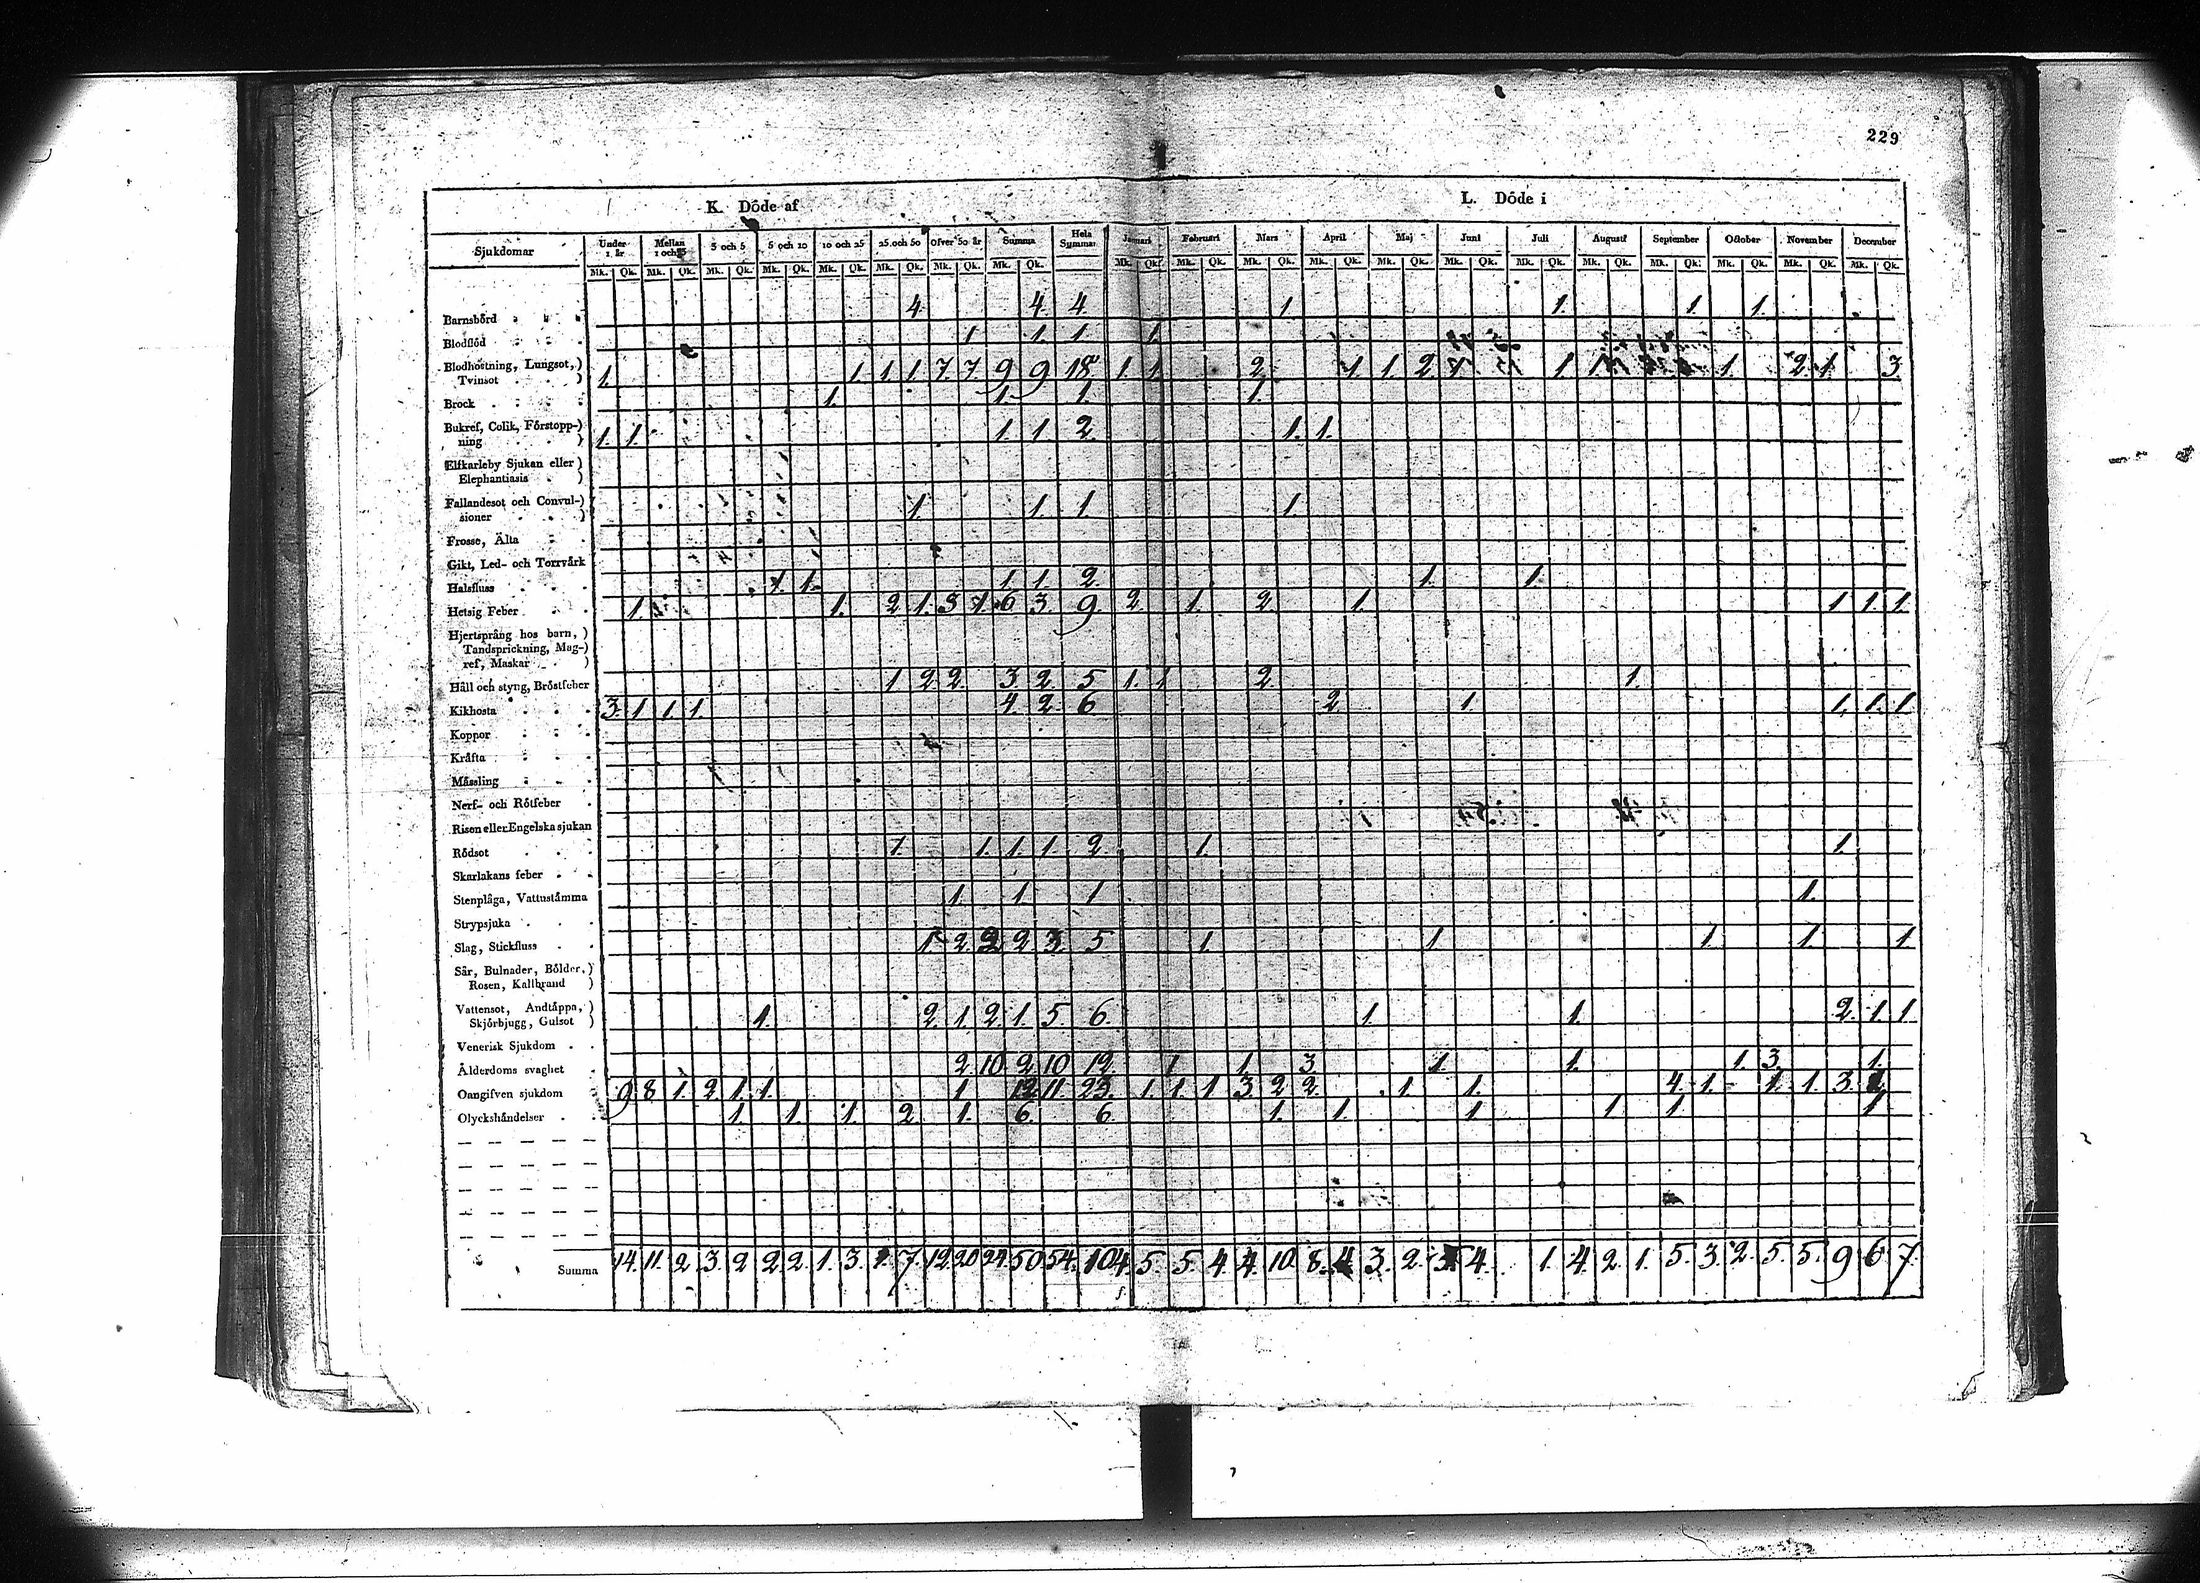 229
K. Döde af
L. Döde i
Sjukdomar Under 1. år Mellan 1 och 3 3 och 5 5 och 10 10 och 25 25 och 50 Öfver 50 år Summa Hela Summan Januari Februari Mars April Maj Juni Juli Augusti September October November December
Mk. Qk. Mk. Qk. Mk. Qk. Mk. Qk. Mk. Qk. Mk. Qk. Mk. Qk. Mk. Qk. Mk. Qk. Mk. Qk. Mk. Qk. Mk. Qk. Mk. Qk. Mk. Qk. Mk. Qk. Mk. Qk. Mk. Qk. Mk. Qk. Mk. Qk. Mk. Qk.
Barnsbörd 4. 4. 4 1. 1. 1. 1.
Blodflöd 1 1. 1 1.
Blodhostning, Lungsot,)
Tvinsot ) 1. 1. 1. 1 7. 7. 9 9 18 1. 1. 2. 1 1. 2 1 1. 2. 1. 3
Brock 1. 1. 1. 1.
Bukref, Colik, Förstopp-)
ning ) 1. 1. 1. 1 2. 1. 1.
Elfkarleby Sjukan eller)
Elephantiasis )
Fallandesot och Convul-)
sioner ) 1. 1. 1. 1.
Frosse, Älta
Gikt, Led- och Torrvärk
Halsfluss 1. 1. 1. 1. 2. 1. 1.
Hetsig Feber 1. 1. 2 1. 3 1. 6 3. 9. 2. 1. 2. 1. 1. 1. 1
Hjertsprång hos barn, )
Tandsprickning, Mag-)
ref, Maskar )
Håll och styng, Bröstfeber 1 2 2. 3 2. 5 1. 1 2. 1.
Kikhosta 3. 1 1. 1. 4. 2. 6 2 1. 1. 1. 1
Koppor
Kräfta
Mässling
Nerf- och Rötfeber
Risen eller Engelska sjukan
Rödsot 1. 1. 1. 1. 2. 1. 1.
Skarlakans feber
Stenplåga, Vattustämma 1. 1. 1 1.
Strypsjuka
Slag, Stickfluss 1. 2. 2 2. 3. 5 1. 1 1. 1. 1
Sår, Bulnader, Bölder, )
Rosen, Kallbrand )
Vattensot, Andtäppa, )
Skjörbjugg, Gulsot ) 1. 2. 1. 2. 1. 5. 6. 1. 1. 2. 1. 1
Venerisk Sjukdom
Ålderdoms svaghet 2 10 2 10 12 1 1. 3 1 1. 1. 3. 1.
Oangifven sjukdom 9 8 1. 2 1. 1. 1 12 11 23. 1. 1 1 3 2 2. 1. 1. 4. 1. 1. 1. 3.
Olyckshändelser 1. 1. 1. 2. 1. 6. 6. 1. 1. 1 1 1 1
Summa 14. 11. 2 3. 2 2. 2. 1. 3. 7. 12. 20 24. 50 54. 104. 5. 5. 4 4. 10. 8. 4. 3. 2. 4. 1. 4. 2. 1. 5. 3. 2. 5. 5. 9 6 7.